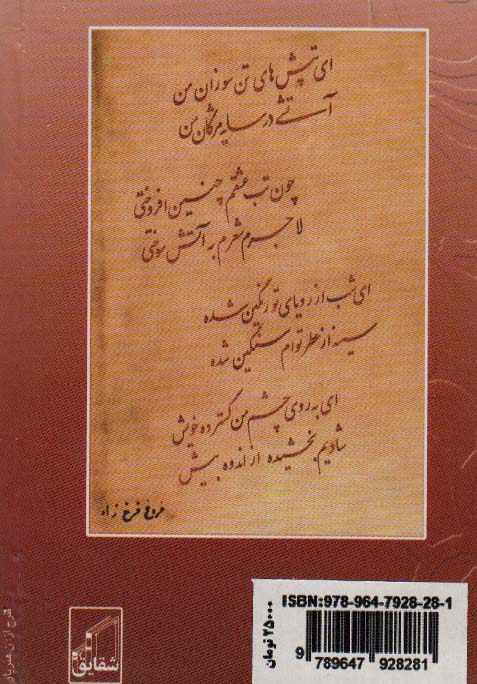 ای تپش های تن سوزان من
آتشی در سایه مژگان من
چون تب عشقم چنین افروختی
لا جرم شعرم به آتش سوختی
ای شب از رویای تو رنگین شده
سینه از عطر توام سنگین شده
ای به روی چشم من گسترده خویش
شادیم بخشیده از اندوه بیش
فروغ فرخ زاد
ISBN:978-964-7928-28-1
۲۵۰۰۰ تومان
9 789647 928281
شقایق